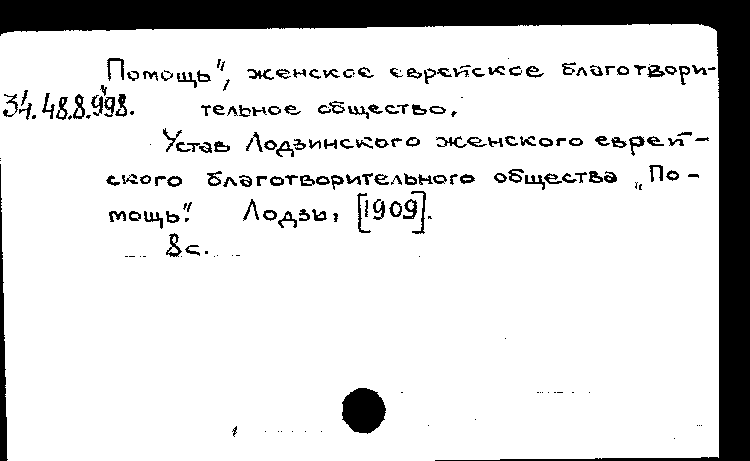 Помощь", женское еврейское благотвори-
34.48.8.998. тельное общество.
Устав Лодзинского женского еврей-
ского благотворительного общества „По-
мощь". Лодзь, [1909].
8 с.